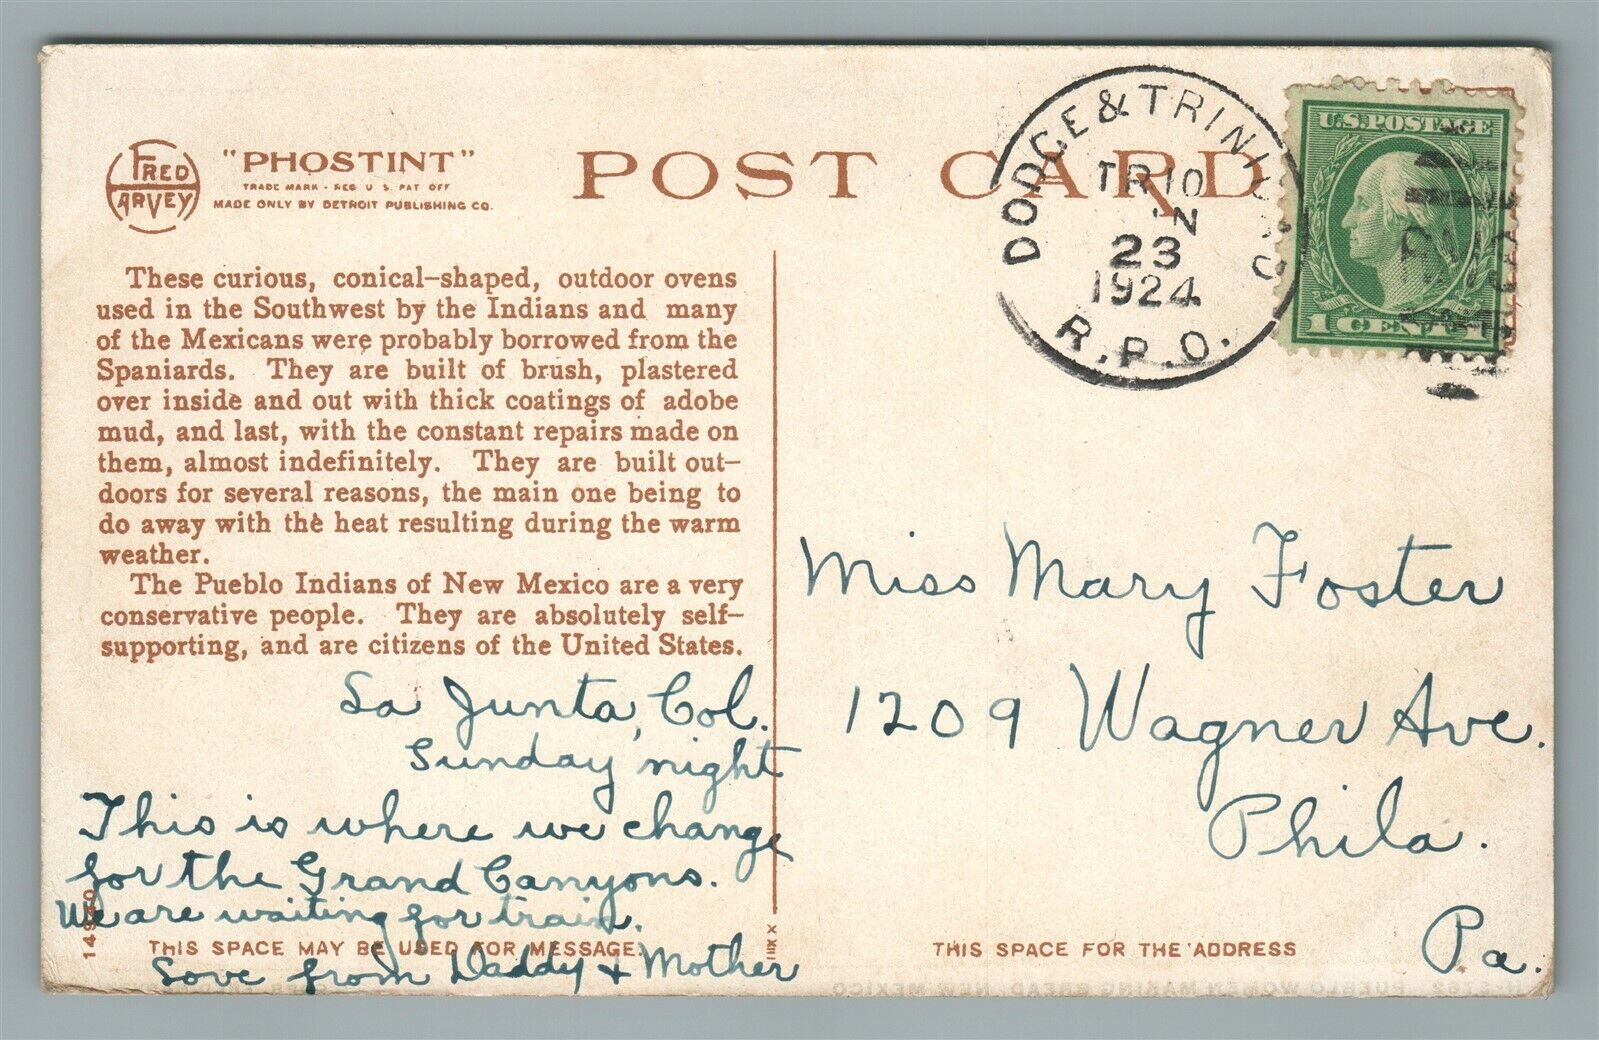 FRED
HARVEY
"PHOSTINT"
TRADE MARK - REG U S. PAT OFF
MADE ONLY BY DETROIT PUBLISHING CO.
POST CARD
DODGE & TRINID. C.
TR 10
23
1924
R.P.O.
U.S.POSTAGE
1 CENT 1
These curious, conical-shaped, outdoor ovens
used in the Southwest by the Indians and many
of the Mexicans were probably borrowed from the
Spaniards. They are built of brush, plastered
over inside and out with thick coatings of adobe
mud, and last, with the constant repairs made on
them, almost indefinitely. They are built out-
doors for several reasons, the main one being to
do away with the heat resulting during the warm
weather.
The Pueblo Indians of New Mexico are a very
conservative people. They are absolutely self-
supporting, and are citizens of the United States.
La Junta, Col.
Sunday night
This is where we change
for the Grand Canyons.
We are waiting for train.
Love from Daddy + Mother
14940
THIS SPACE MAY BE USED FOR MESSAGE.
XIII X
Miss Mary Foster
1209 Wagner Ave.
Phila.
Pa.
THIS SPACE FOR THE ADDRESS
H-2762 PUEBLO WOMEN MAKING BREAD, NEW MEXICO